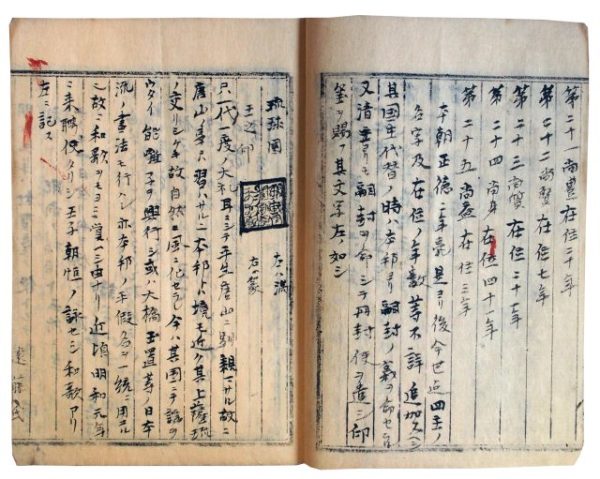 第二十一尚豊在位二十年
第二十二尚賢在位七年
第二十三尚質在位二十一年
第二十四尚貞在位四十一年
第二十五尚益在位三年
本朝正徳二年薨是ヨリ後今世迠四主ノ
名字及在位ノ年数等不詳追加スヘシ
其国王代替ノ時ハ本邦ヨリ嗣封ノ義ヲ命セラル
又清主ヨリモ嗣封ノ命シテ册封使ヲ遣シ印
璽ヲ賜フ其文字左ノ如シ
琉球國
王之印
左ハ満
右ハ篆
只一代一度ノ大礼耳ニシテ平生唐山ニ朝親マサル故ニ
唐山ノ事ハ習ハサルニ本邦ハ境モ近ク其上薩琉
ノ交リシゲキ故自然ト風ニ化セラレ今ハ其国ニテ謡
ウタイ能囃子ノ興行シ或ハ大橋玉置等ノ日本
流ノ書法モ行ハレ亦本邦ノ平假名ヲ一統ニ用ユル
故ニ和歌ヲモヨミ覚ヘシ由ナリ近頃明和元年
ニ来聘使タリシ王子朝恒ノ詠セシ和歌アリ
左ニ記ス